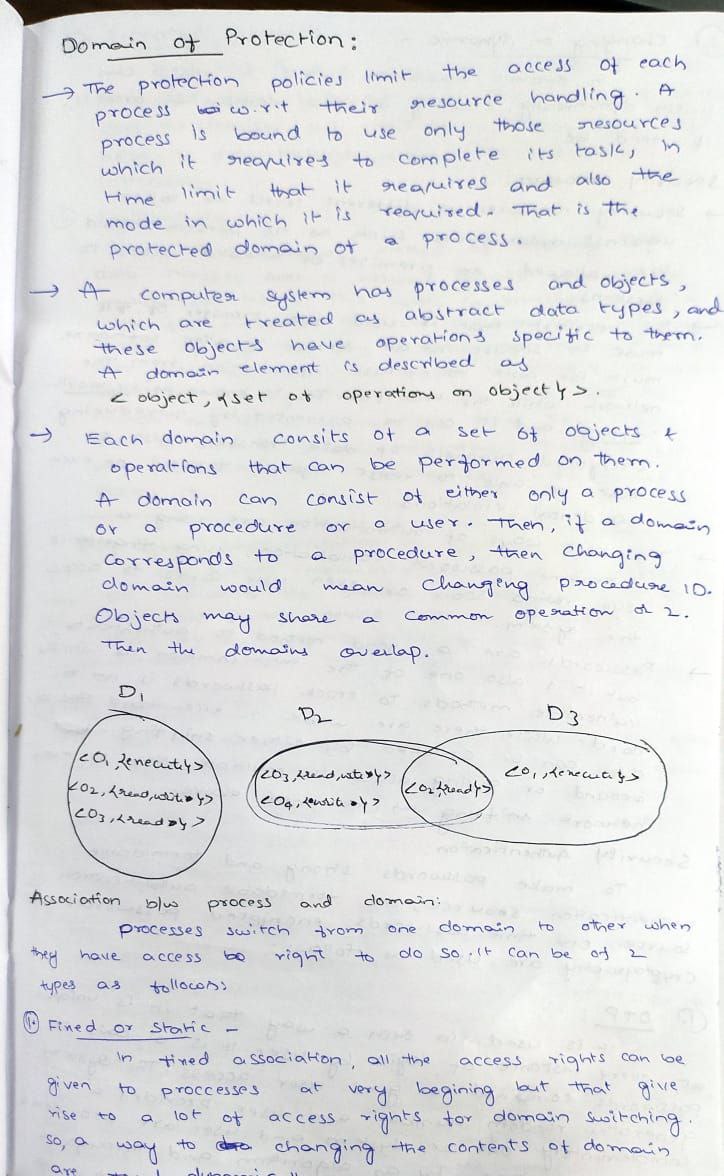 Domain of Protection:
→ The protection policies limit the access of each
process w.r.t their resource handling. A
process is bound to use only those resources
which it requires to complete its task, in
time limit that it requires and also the
mode in which it is required. That is the
protected domain of a process.
→ A computer system has processes and objects,
which are treated as abstract data types, and
these objects have operations specific to them.
A domain element is described as
< object, {set of operations on object} >.
→ Each domain consits of a set of objects &
operations that can be performed on them.
A domain can consist of either only a process
or a procedure or a user. Then, if a domain
corresponds to a procedure, then changing
domain would mean changing procedure ID.
Objects may share a common operation or 2.
Then the domains overlap.
D1 D2 D3
<O1, {execute}>
<O2, {read, write}>
<O3, {read}>
<O3, {read, write}>
<O4, {write}>
<O2 {read}>
<O1, {execute}>
Association b/w process and domain:
processes switch from one domain to other when
they have access right to do so. It can be of 2
types as follows:
1. Fixed or Static -
In fixed association, all the access rights can be
given to proccesses at very begining but that give
rise to a lot of access rights for domain switching.
So, a way to changing the contents of domain
are